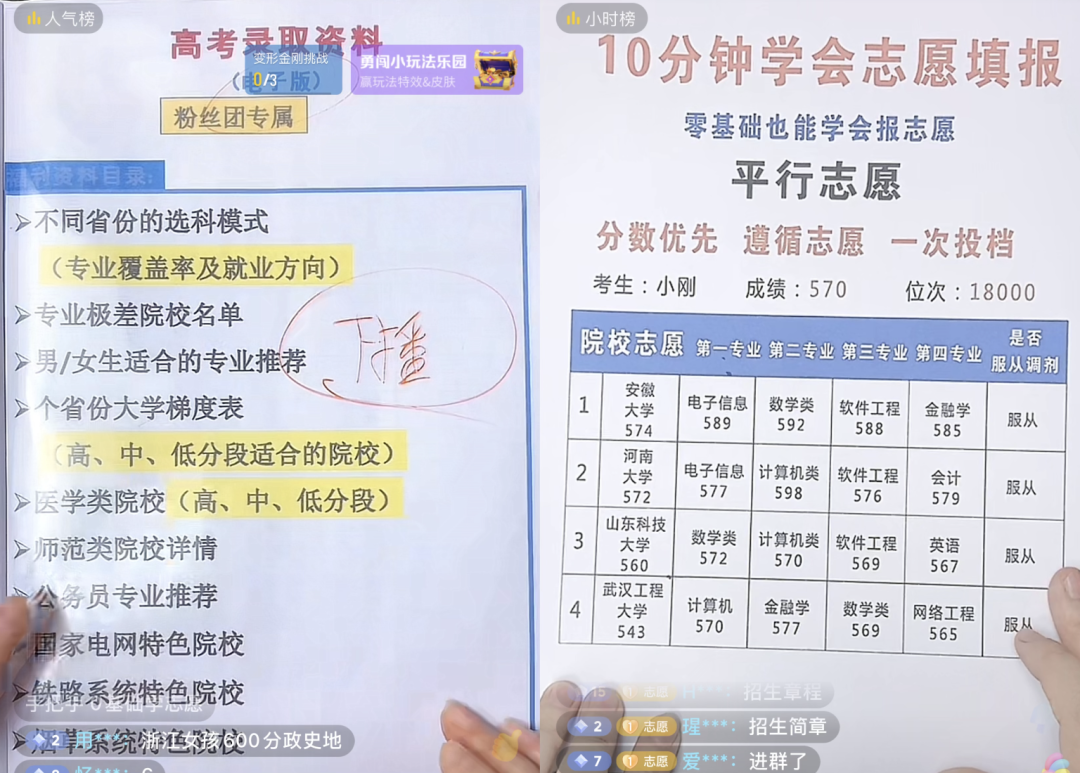 人气榜
高考录取资料
变形金刚挑战
0/3
勇闯小玩法乐园
赢玩法特效&皮肤
(电子版)
粉丝团专属
资料目录:
➢不同省份的选科模式
(专业覆盖率及就业方向)
➢专业极差院校名单
➢男/女生适合的专业推荐
➢个省份大学梯度表
(高、中、低分段适合的院校)
➢医学类院校(高、中、低分段)
➢师范类院校详情
➢公务员专业推荐
国家电网特色院校
➢铁路系统特色院校
手把手0基础学志愿
草系统特色院校
2 用***: 浙江女孩600分政史地
小时榜
10分钟学会志愿填报
零基础也能学会报志愿
平行志愿
分数优先 遵循志愿 一次投档
考生:小刚 成绩:570 位次:18000
院校志愿 第一专业 第二专业 第三专业 第四专业 是否服从调剂
1 安徽大学574 电子信息589 数学类592 软件工程588 金融学585 服从
2 河南大学572 电子信息577 计算机类598 软件工程576 会计579 服从
3 山东科技大学560 数学类572 计算机类570 软件工程569 英语567 服从
4 武汉工程大学543 计算机570 金融学577 数学类569 网络工程565 服从
15 志愿 ***: 招生章程
2 志愿 瑆***: 招生简章
7 志愿 爱***: 进群了